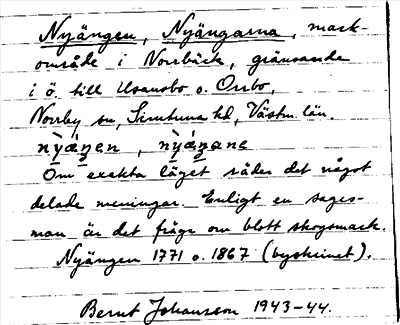 Nyängen, Nyängarna, mark-
område i Norrbäck, gränsande
i ö. till Usansbo o. Orrbo,
Norrby sn, Simtuna hd, Västm. län.
Om exakta läget råder det något
delade meningar. Enligt en sages-
man är det fråga om blott skogsmark.
Nyängen 1771 o. 1867 (byskrinet).
Bernt Johansson 1943-44.